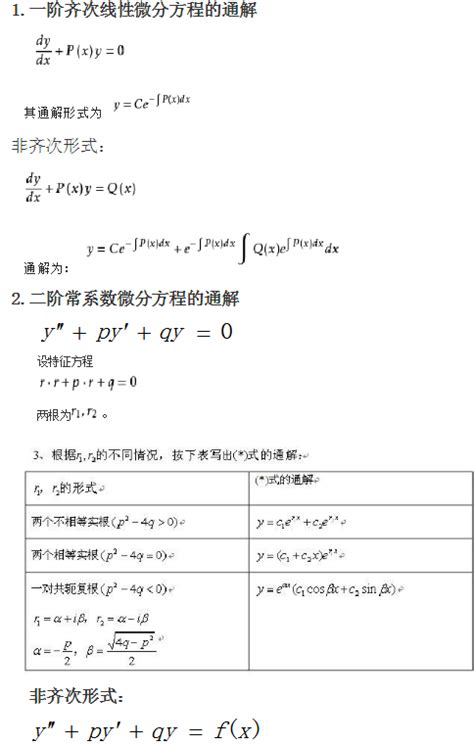 1. 一阶齐次线性微分方程的通解
dy/dx + P(x)y = 0
其通解形式为 y = Ce^{-∫P(x)dx}
非齐次形式：
dy/dx + P(x)y = Q(x)
通解为： y = Ce^{-∫P(x)dx} + e^{-∫P(x)dx} ∫ Q(x)e^{∫P(x)dx}dx
2. 二阶常系数微分方程的通解
y″ + py′ + qy = 0
设特征方程
r·r + p·r + q = 0
两根为r₁,r₂ 。
3、根据r₁,r₂的不同情况，按下表写出(*)式的通解：
r₁，r₂的形式 (*)式的通解
两个不相等实根(p² − 4q > 0) y = c₁e^{r₁x} + c₂e^{r₂x}
两个相等实根(p² − 4q = 0) y = (c₁ + c₂x)e^{r₁x}
一对共轭复根(p² − 4q < 0) y = e^{αx}(c₁ cos βx + c₂ sin βx)
r₁ = α + iβ，r₂ = α − iβ
α = −p/2，β = √(4q − p²)/2
非齐次形式：
y″ + py′ + qy = f(x)